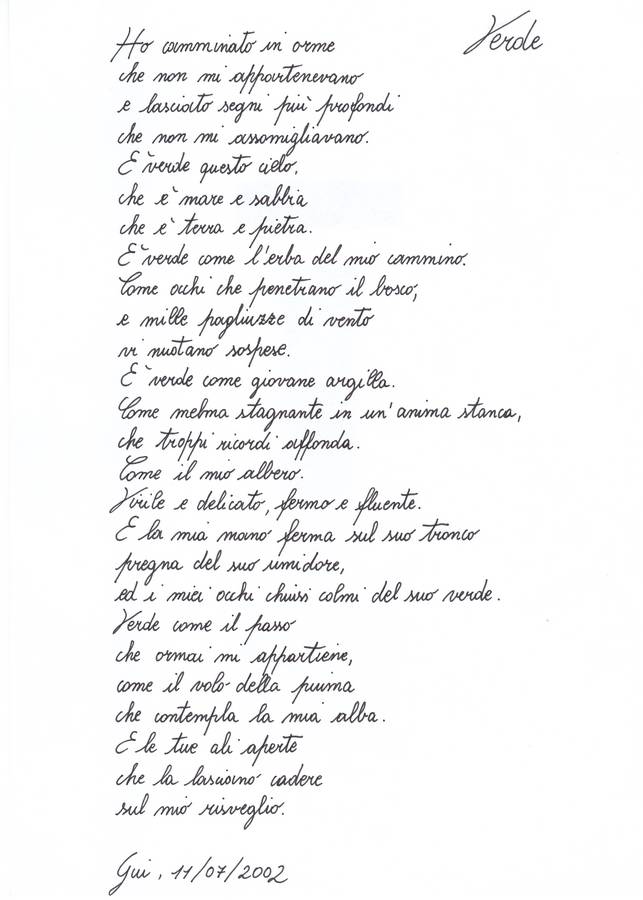 Verde
Ho camminato in orme
che non mi appartenevano
e lasciato segni più profondi
che non mi assomigliavano.
E' verde questo cielo,
che è mare e sabbia
che è terra e pietra.
E' verde come l'erba del mio cammino.
Come occhi che penetrano il bosco,
e mille pagliuzze di vento
vi nuotano sospese.
E' verde come giovane argilla.
Come melma stagnante in un'anima stanca,
che troppi ricordi affonda.
Come il mio albero.
Virile e delicato, fermo e fluente.
E la mia mano ferma sul suo tronco
pregna del suo umidore,
ed i miei occhi chiusi colmi del suo verde.
Verde come il passo
che ormai mi appartiene,
come il volo della piuma
che contempla la mia alba.
E le tue ali aperte
che la lasciano cadere
sul mio risveglio.
Gui, 11/07/2002